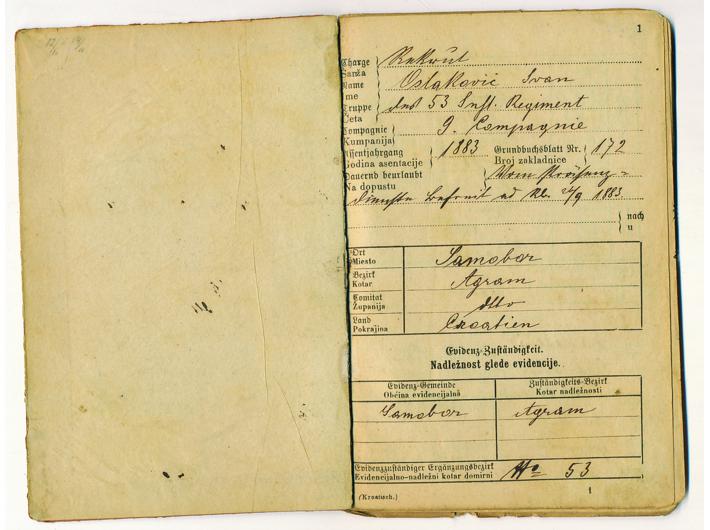 1
Charge Šarža } Rekrut
Name Ime } Oslaković Ivan
Truppe Četa } des 53 Inft. Regiment
Compagnie Kumpanija } 9. Compagnie
Assentjahrgang Godina asentacije } 1883 Grundbuchsblatt Nr. Broj zakladnice } 172
Dauernd beurlaubt Na dopustu } Vom Präsenz=
dienste befreit ad No. 24/9 1883
} nach u
Ort Miesto Samobor
Bezirk Kotar Agram
Comitat Županija dtto
Land Pokrajina Croatien
Evidenz-Zuständigkeit.
Nadležnost glede evidencije.
Evidenz-Gemeinde Zuständigkeits-Bezirk
Obćina evidencijalna Kotar nadležnosti
Samobor Agram
Evidenzzuständiger Ergänzungsbezirk
Evidencijalno-nadležni kotar domirni No 53
(Kroatisch.) 1